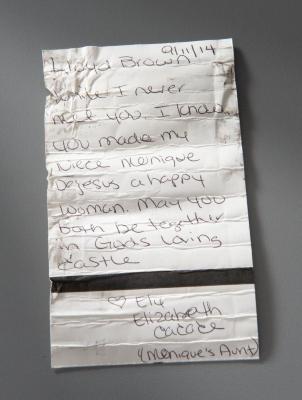 9/11/14
Lloyd Brown
I never
met you. I know
you made my
niece Monique
DeJesus a happy
woman. May you
both be together
in Gods loving
castle
♡
Elizabeth
Cacace
(Monique's Aunt)